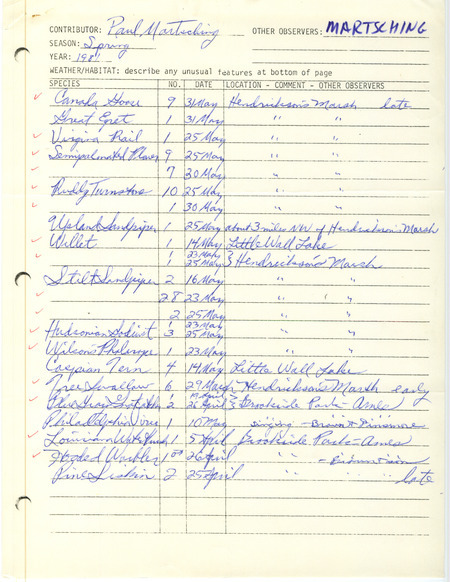 CONTRIBUTOR: Paul Martsching OTHER OBSERVERS: MARTSCHING
SEASON: Spring
YEAR: 1981
WEATHER/HABITAT: describe any unusual features at bottom of page
SPECIES NO. DATE LOCATION - COMMENT - OTHER OBSERVERS
Canada Goose 9 31 May Hendrickson's Marsh late
Great Egret 1 31 May " "
Virginia Rail 1 25 May " "
Semipalmated Plover 9 25 May " "
7 30 May " "
Ruddy Turnstone 10 25 May " "
1 30 May " "
Upland Sandpiper 1 25 May about 3 miles NW of Hendrickson's Marsh
Willet 1 14 May Little Wall Lake
1 23 May
1 25 May } Hendrickson's Marsh
Stilt Sandpiper 2 16 May " "
28 23 May " "
2 25 May " "
Hudsonian Godwit 1 23 May
3 25 May " "
Wilson's Phalarope 1 23 May " "
Caspian Tern 4 14 May Little Wall Lake
Tree Swallow 6 29 March Hendrickson's Marsh early
Blue Gray Gnatcatcher 1 19 April
2 26 April } Brookside Park - Ames
Philadelphia Vireo 1 10 May " singing -
Louisiana Waterthrush 1 5 April Brookside Park - Ames
Hooded Warbler 1 26 April " "
Pine Siskin 2 25 April " " late